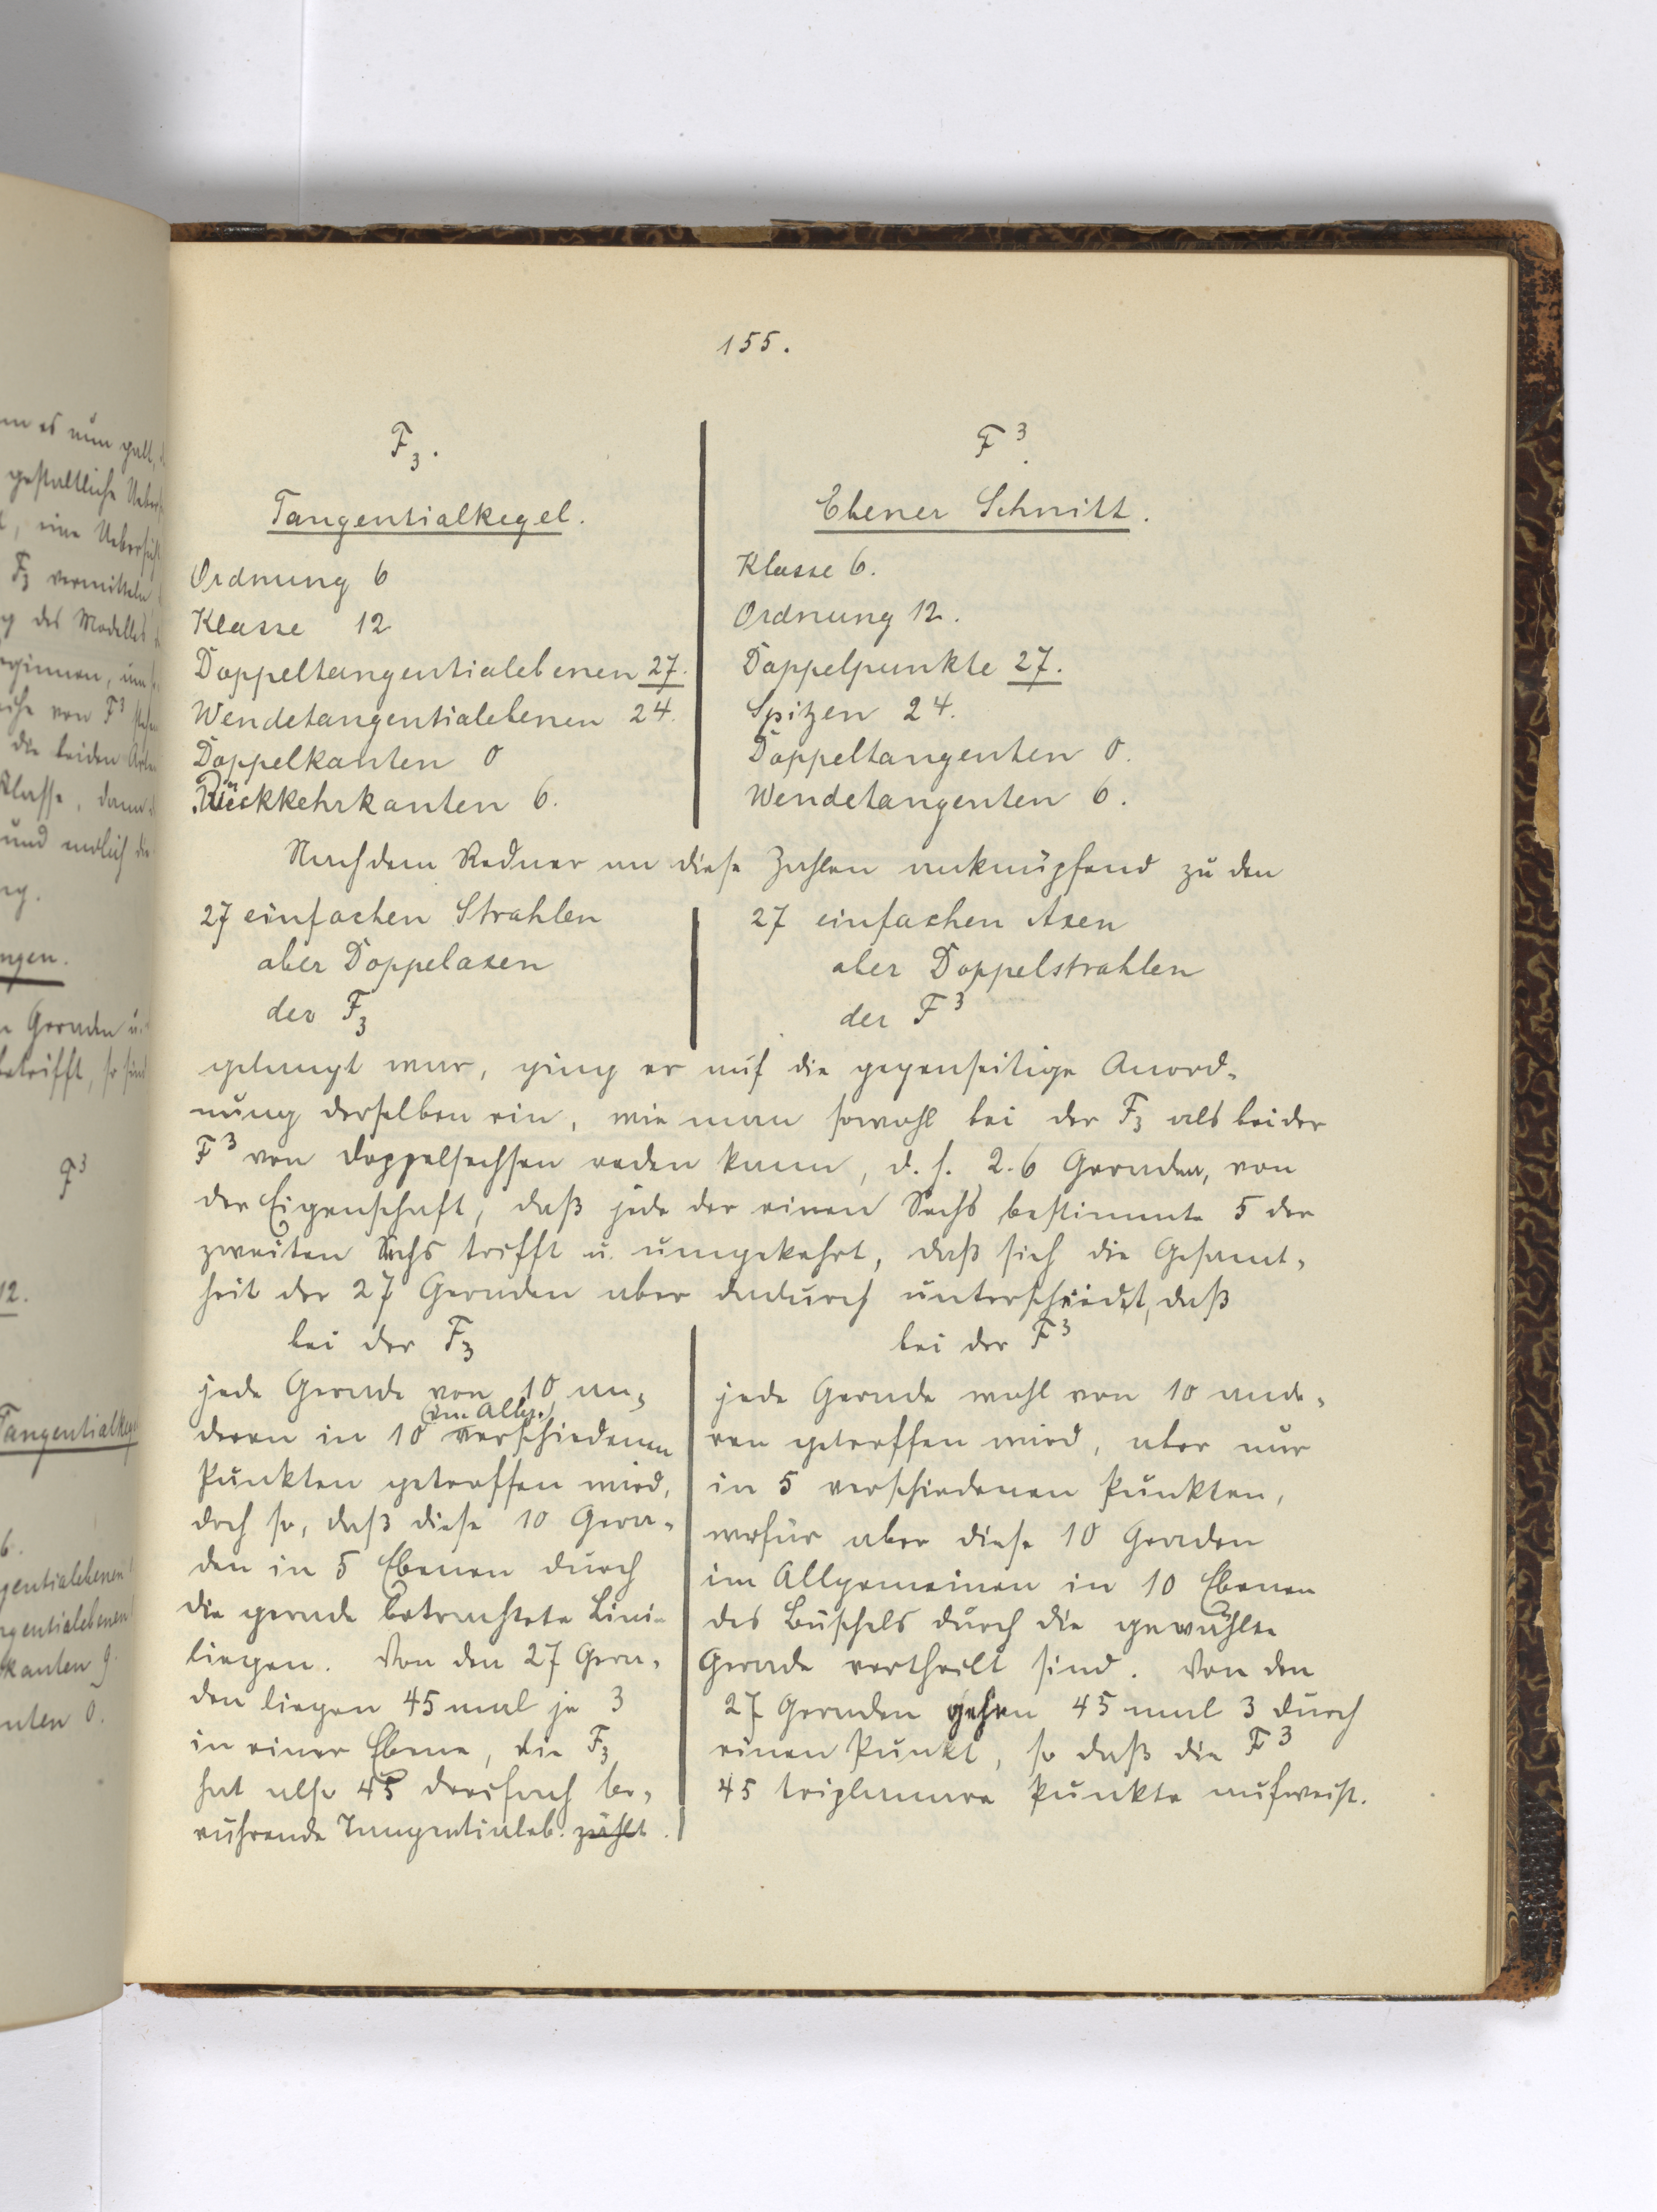 155.
F₃.
Tangentialkegel.
Ordnung 6
Klasse 12
Doppeltangentialebenen 27.
Wendetangentialebenen 24.
Doppelkanten 0
Rückkehrkanten 6.
F³.
Ebener Schnitt.
Klasse 6.
Ordnung 12.
Doppelpunkte 27.
Spitzen 24.
Doppeltangenten 0.
Wendetangenten 6.
Nachdem Redner an diese Zahlen anknüpfend zu den
27 einfachen Strahlen
aber Doppelaxen
der F₃
27 einfachen Axen
aber Doppelstrahlen
der F³
gelangt war, ging er auf die gegenseitige Anord-
nung derselben ein, wie man sowohl bei der F₃ als bei der
F³ von Doppelsechsen reden kann, d. h. 2.6 Geraden, von
der Eigenschaft, daß jede der einen Sechs bestimmte 5 der
zweiten Sechs trifft u. umgekehrt, daß sich die Gesamt-
heit der 27 Geraden aber dadurch unterscheidet, daß
bei der F₃
jede Gerade von 10 an-
(im Allg.)
deren in 10 verschiedenen
Punkten getroffen wird,
doch so, daß diese 10 Gera-
den in 5 Ebenen durch
die gerade betrachtete Linie
liegen. Von den 27 Gera-
den liegen 45 mal je 3
in einer Ebene, die F₃
hat also 45 dreifach be-
rührende Tangentialeb. zählt.
bei der F³
jede Gerade wohl von 10 ande-
ren getroffen wird, aber nur
in 5 verschiedenen Punkten,
wofür aber diese 10 Geraden
im Allgemeinen in 10 Ebenen
des Büschels durch die gewählte
Gerade vertheilt sind. Von den
27 Geraden gehen 45 mal 3 durch
einen Punkt, so daß die F³
45 triplanare Punkte aufweist.
es nun galt,
gestaltliche
F₃ vermitteln
des Modelles
von F³
die beiden
Klasse, dann
und endlich die
Geraden u.
betrifft, so sind
F³
12.
Tangentialkegel
6.
kanten 9.
0.